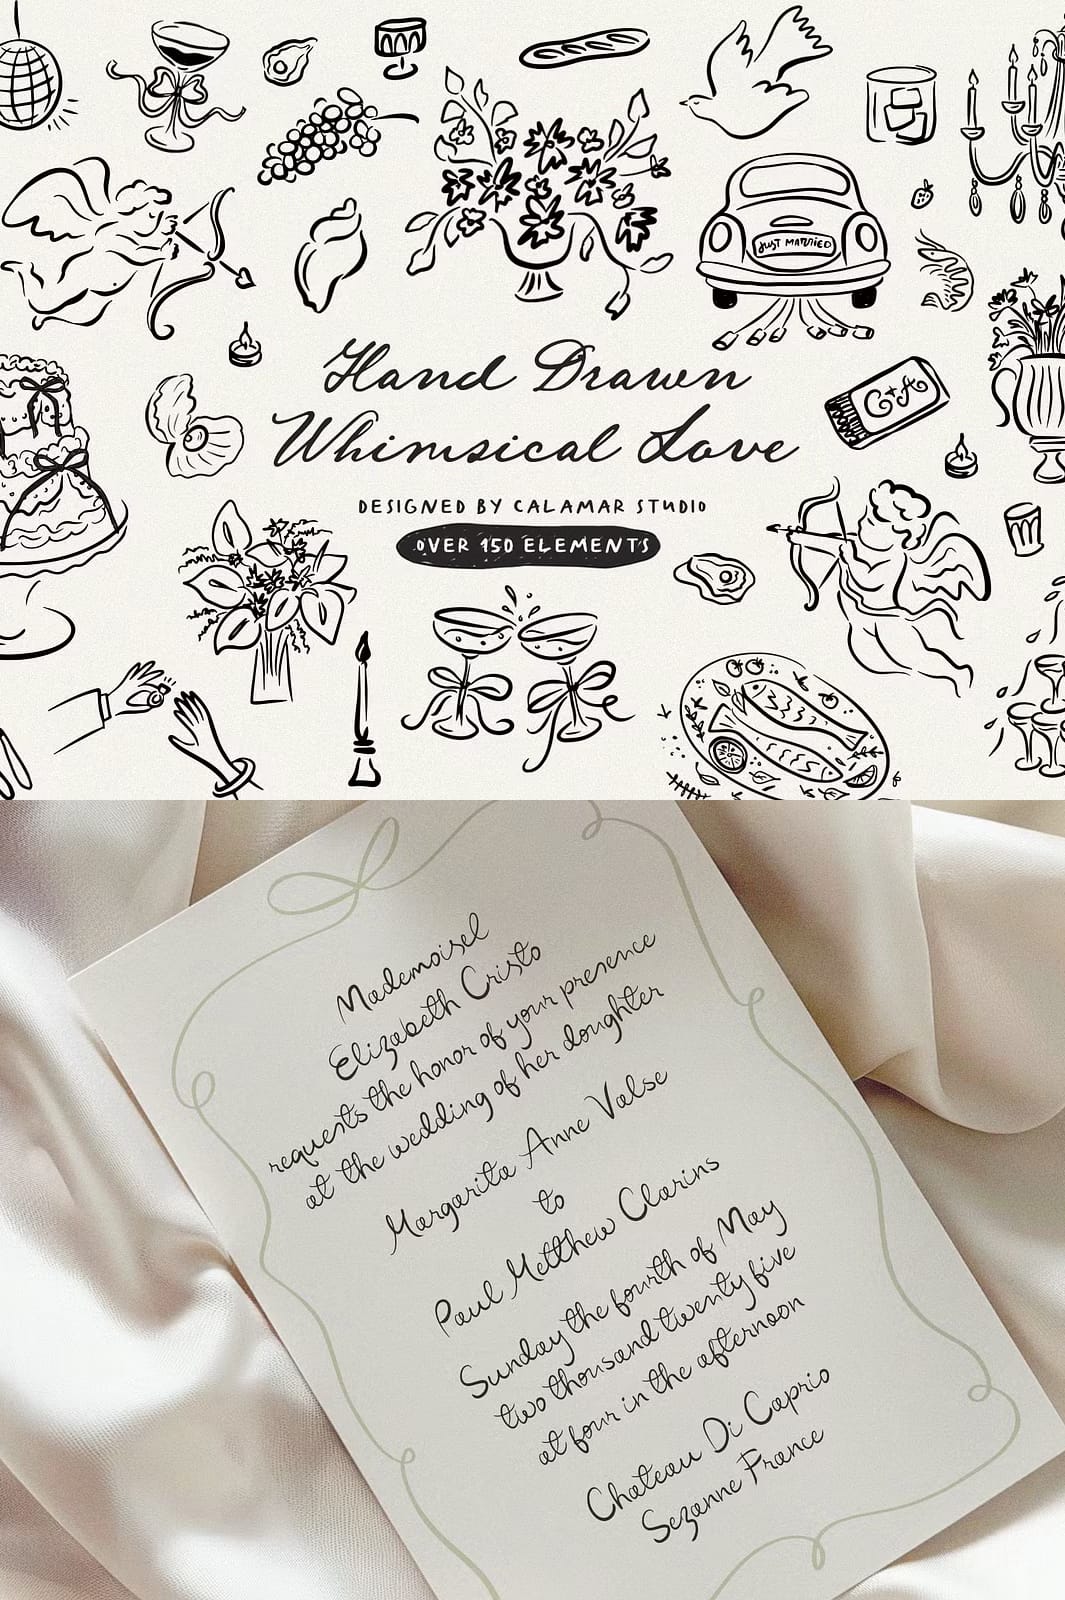 JUST MARRIED
G+A
Hand Drawn
Whimsical Love
DESIGNED BY CALAMAR STUDIO
OVER 150 ELEMENTS
Mademoisel
Elizabeth Cristo
requests the honor of your presence
at the wedding of her doughter
Margarita Anne Valse
to
Paul Metthew Clarins
Sunday the fourth of May
two thousand twenty five
at four in the afternoon
Chateau Di Caprio
Sezanne France